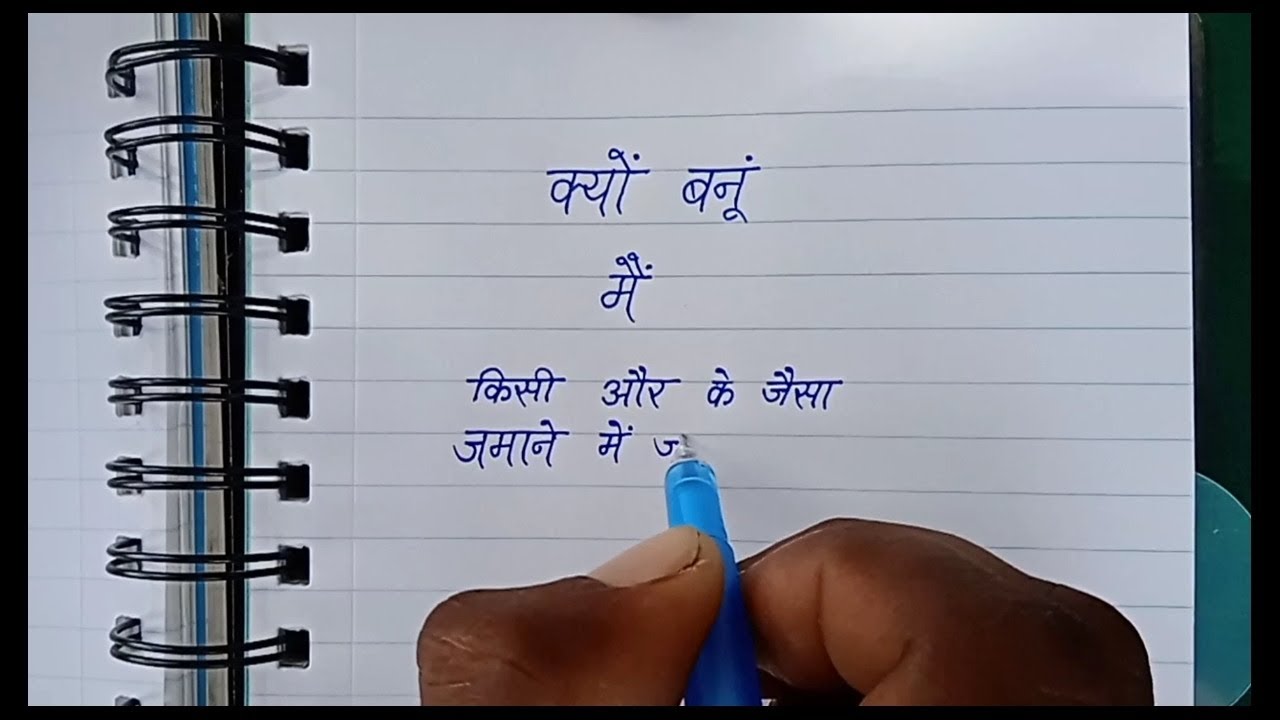 क्यों बनूं
मैं
किसी और के जैसा
ज़माने में